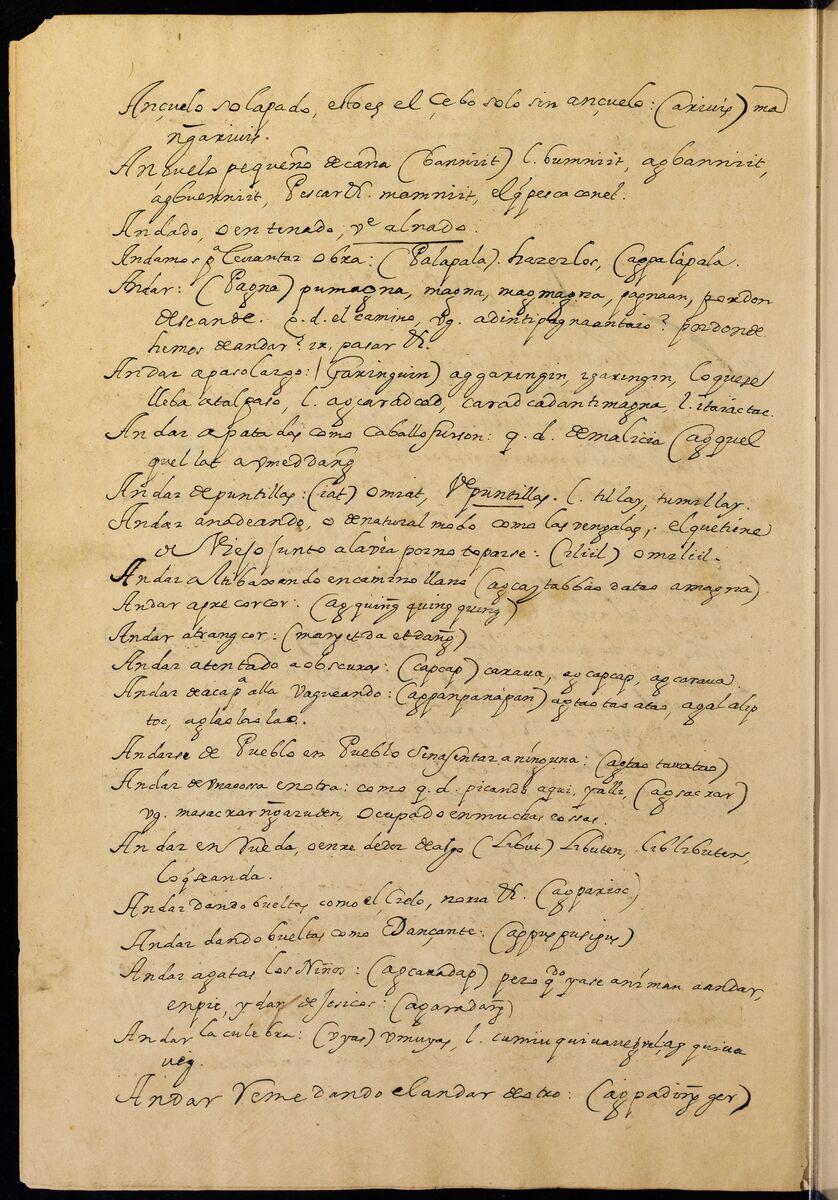 Ançuelo solapado, esto es el çebo solo sin ançuelo: (ariuis) ma
n͠gariuis.
Ançuelo pequeño de caña (banniit) l. bumniit, agbanniit,
agbuemniit, Pescar &. mamniit, el q̃ pesca con el.
Andado, o entenado, vᵉ alnado.
Andamos pª levantar obra: (Palapala). hazerlos, (agpalápala.
Andar: (Pagna) pumagna, magna, magmagna, pagnaan, pordon
descande. q. d. el camino, vg. adinti pagnaantaio? por donde
hemos de andar? ir, pasar &.
Andar a paso largo: (garinguin) aggaringin, igaringin, lo que se
lleba a tal paso, l. agcaradcad, caradcadanti magna, l. itaractac.
Andar a patadas como caballo furson: q. d. de malicia (agquel
quellat a vmeddan͠g
Andar de puntillas: (iat) omiat, Vᵉ puntillas. l. tillay, tumillay.
Andar anadeando, o de natural modo como las vengalas, el que tiene
el Viejo junto a la via por no toparse: (ilicil) omilicil.
Andar a subaxando en camino llano (agcastabbao datao a magna)
Andar apre corcor: (agquin͠g quing quing)
Andar atrangcor: (mangetda etdan͠g)
Andar atentado a obscuras: (capcap) caraua, agcapcap, agcaraua.
Andar de aca pª alla vagueando: (agpanpanapan) agtao tao atao, agal alip
toc, aglas las lao.
Andarse de Pueblo en Pueblo sin asentar a ninguna: (agtao tauatao)
Andar de una cossa en otra: como q. d. picando aqui, y alli, (agsac rar)
vg. masac rar n͠garuden, ocupado en muchas cossas.
Andar en rueda, o en rededor de algo (Libut) Libuten, liblibuten,
lo q̃ se anda.
Andar dando bueltas como el Cielo, noria &. (agparioc)
Andar dando bueltas como Dançante: (agpuspusipus)
Andar agatas los Niños: (agcaradap) pero q̃do ya se animan a andar,
en pie, y dan de Josicos: (agaradan͠g)
Andar la culebra: (vyas) vmuyas, l. cumiuquiuaueg, l, ag quiua
ueg.
Andar remedando el andar de otro: (agpadin͠g ger)